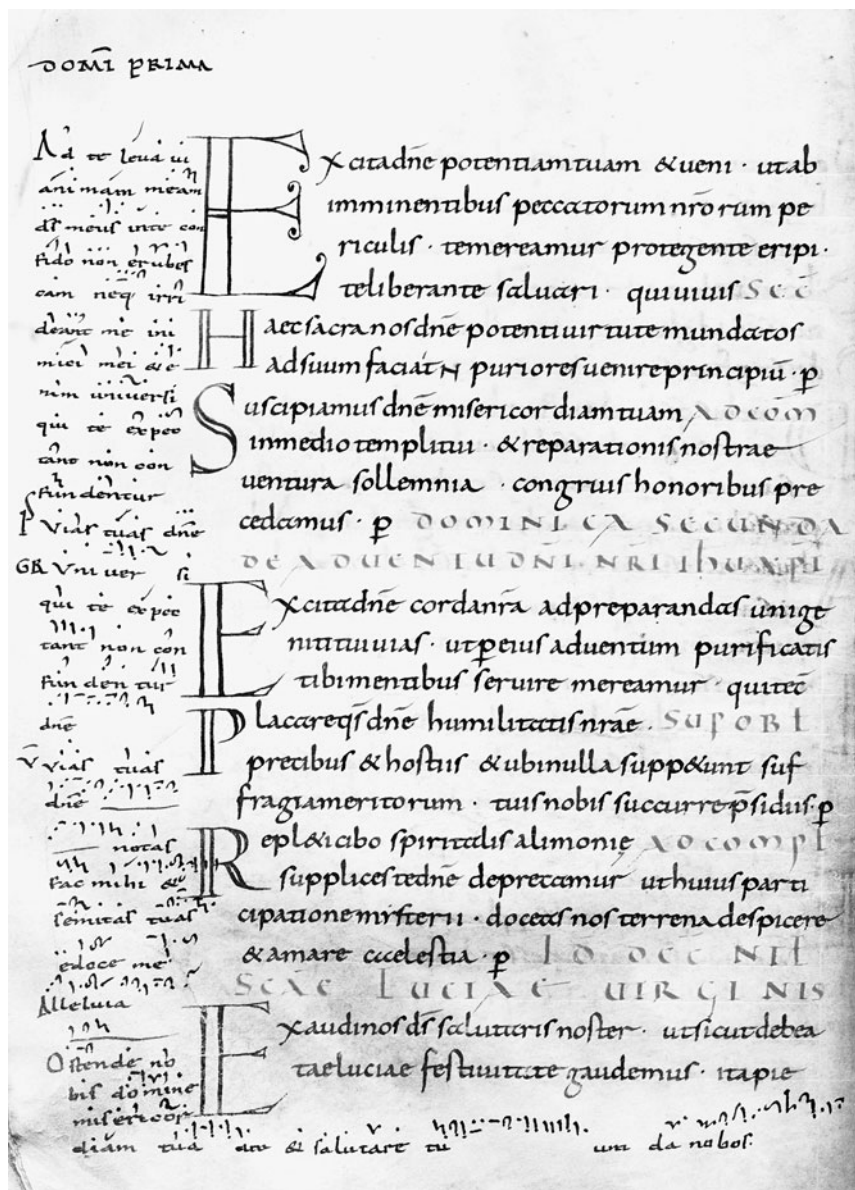 DOMI PRIMA
Ad te leva vi
animam meam
ds meus in te con
fido non erubes
cam neq irri
deant me ini
mici mei & e
nim universi
qui te expec
tant non con
fundentur
Vias tuas dne
GR Univer si
qui te expec
tant non con
fundentur
dne
V Vias tuas
dne
notas
fac mihi &
semitas tuas
edoce me
Alleluia
Ostende no
bis domine
misericor
diam tua &salutare tu um da nobos.
Excita dne potentiam tuam & veni · ut ab
imminentibus peccatorum nrorum pe
riculis · te mereamur protegente eripi ·
te liberante salvari · qui vivis SEC
Haec sacra nos dne potenti virtute mundatos
ad suum faciant puriores venire principiu · p
Suscipiamus dne misericordiam tuam AD COM
in medio templi tui · & reparationis nostrae
ventura sollemnia · congruis honoribus pre
cedamus · p DOMINICA SECUNDA
DE ADVENTU DNI NRI IHU XPI
Excita dne corda nra ad preparandas unige
niti tui vias · ut p eius adventum purificatis
tibi mentibus servire mereamur · qui tec
Placare qs dne humilitatis nrae · SUP OBL
precibus & hostiis & ubi nulla supp&unt suf
fragia meritorum · tuis nobis succurre psidiis · p
Repl&i cibo spiritalis alimonię AD COMPL
supplices te dne deprecamur ut huius parti
cipatione mysterii · doceas nos terrena despicere
& amare caelestia · p ID DEC NTL
SCAE LUCIAE VIRGINIS
Exaudi nos ds salutaris noster · ut sicut de bea
tae luciae festivitate gaudemus · ita pie